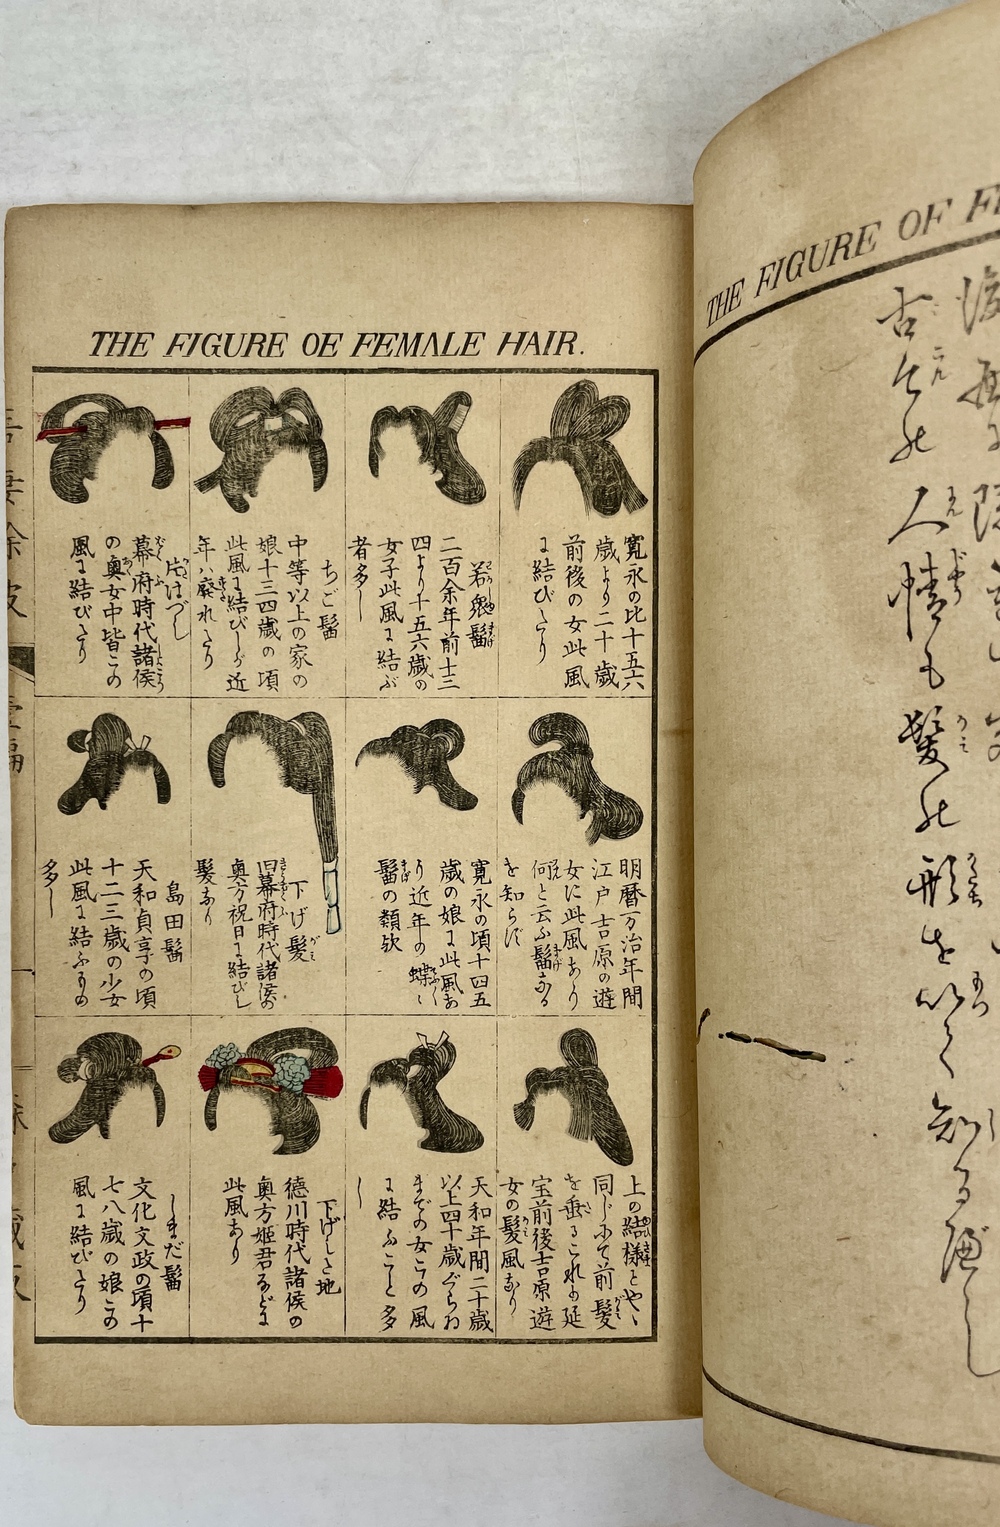 THE FIGURE OE FEMALE HAIR.
寛永の比十五六
歳より二十歳
前後の女此風
に結びたり
若衆髷
二百余年前十三
四より十五六歳の
女子此風に結ぶ
者多し
ちご髷
中等以上の家の
娘十三四歳の頃
此風に結びしが近
年ハ廃れたり
片はづし
幕府時代諸侯
の奥女中皆この
風に結びたり
明暦万治年間
江戸吉原の遊
女に此風あり
何と云ふ髷なる
を知らず
寛永の頃十四五
歳の娘に此風あ
り近年の蝶々
髷の類欤
下げ髪
旧幕府時代諸侯の
奥方祝日に結びし
髪なり
島田髷
天和貞享の頃
十二三歳の少女
此風に結ふもの
多し
上の結様とやゝ
同じにて前髪
を垂るこれハ延
宝前後吉原遊
女の髪風なり
天和年間二十歳
以上四十歳ぐらゐ
までの女この風
に結ふこと多
し
下げした地
徳川時代諸侯の
奥方姫君などに
此風あり
しまだ髷
文化文政の頃十
七八歳の娘この
風に結びたり
THE FIGURE OF FE
古今の
人情も
髪の
形を
以て
知るべし